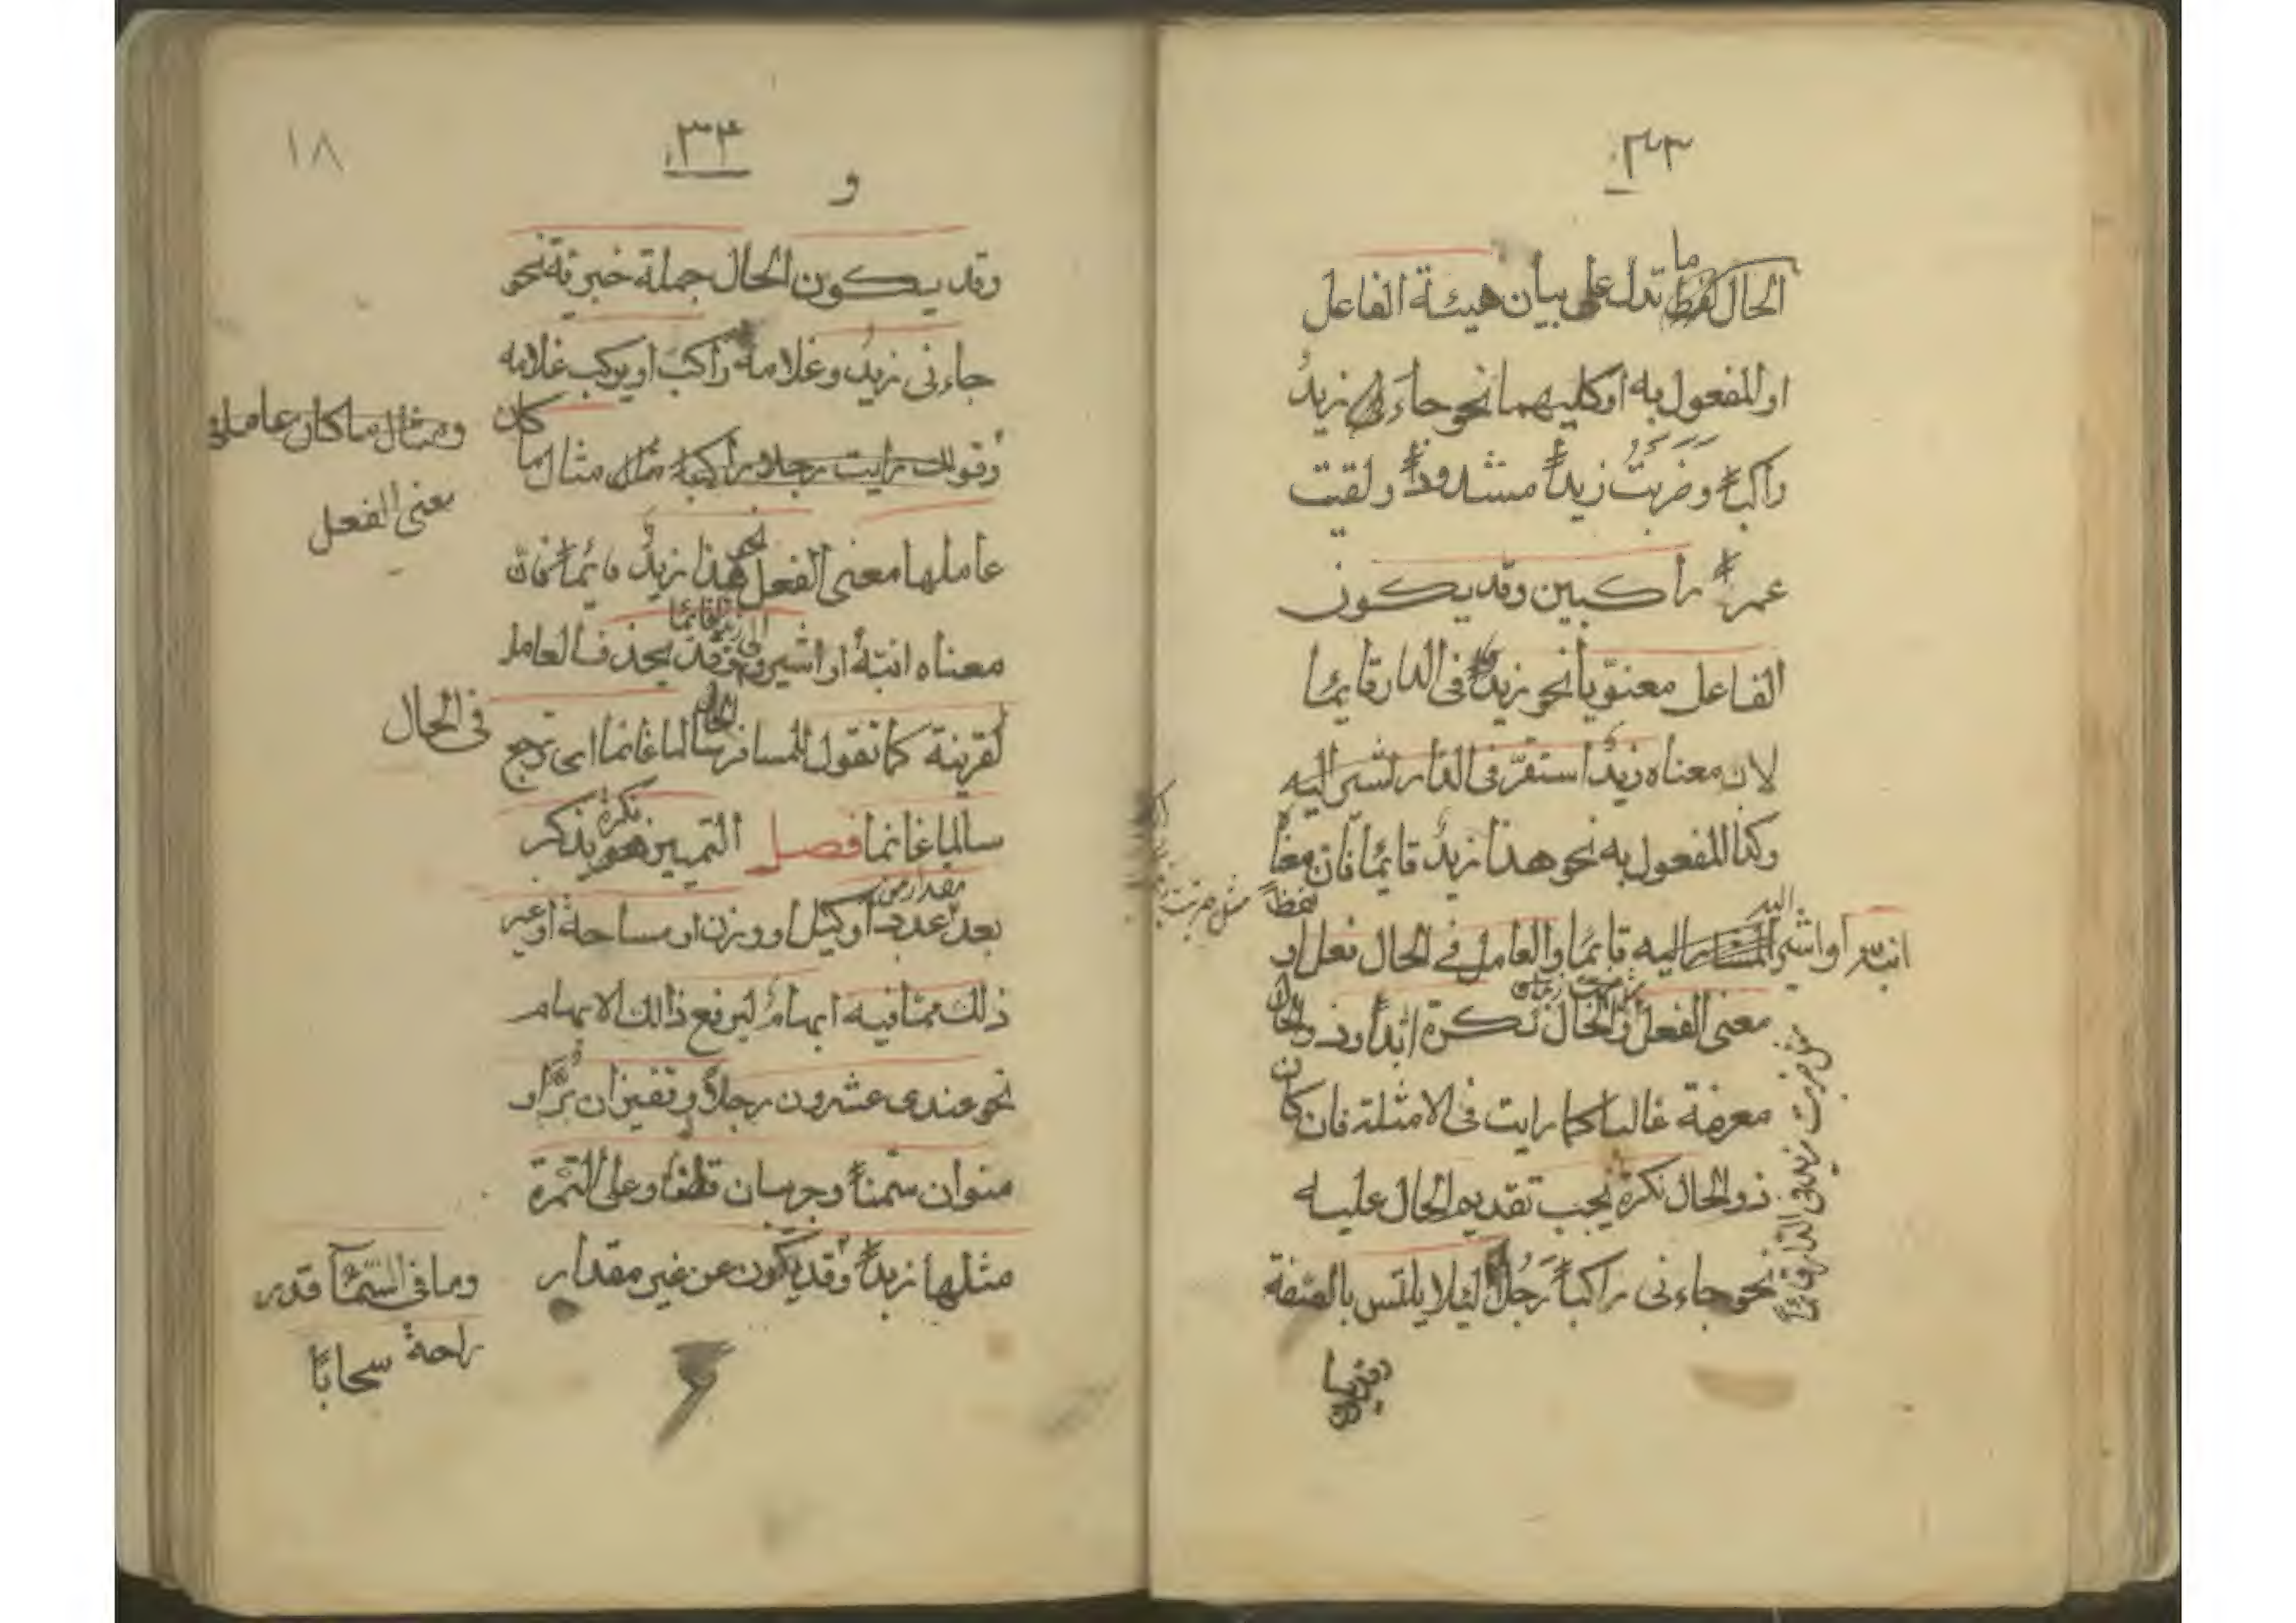 ۳۳
الحال ما تدل على بيان هيئة الفاعل
او المفعول به او كليهما نحو جاءنى زيدٌ
راكباً وضَرَبتُ زيداً مشدوداً ولقيت
عمراً راكبين وقد يكون
الفاعل معنويا نحو زيدٌ فى الدار قائما
لان معناه زيدٌ استقرّ فى الدار
وكذا المفعول به نحو هذا زيدٌ قائما فان معناه
او اشير اليه قائما والعامل فى الحال فعل او
معنى الفعل والحال نكرة ابداً وذو الحال
معرفة غالبا كما رايت فى الامثلة فان كان
ذو الحال نكرة يجب تقديم الحال عليه
نحو جاءنى راكباً رَجُلٌ ليلا يلتبس بالصفة
مثل ضربت
لفظاً
مثل ضربت زيد فى الدار قائماً
۳۴
و
۱۸
وقد يكون الحال جملة خبرية نحو
جاءنى زيدٌ وغلامه راكب او يركب غلامه
وقولك رايت رجلا راكبا مثال ما كان
عاملها معنى الفعل نحو هذا زيدٌ قائماً فان
معناه انتبهُ او اشير وقد يحذف العامل
لقرينة كما تقول للمسافر سالما غانما اى ترجع
سالما غانما فصل التمييز هو نكرة يذكر
بعد مقدار من عدد او كيل او وزن او مساحة او غير
ذلك مما فيه ابهامٌ ليرفع ذالك الابهام
نحو عندى عشرون رجلاً وقفيزان بُرّاً و
منوان سمناً وجريبان قطناً وعلى التمرة
مثلها زبداً وقد يكون عن غير مقدار
ومثال ما كان عاملها
معنى الفعل
فى الحال
وما فى السّمآء قدر
راحة سحابًا